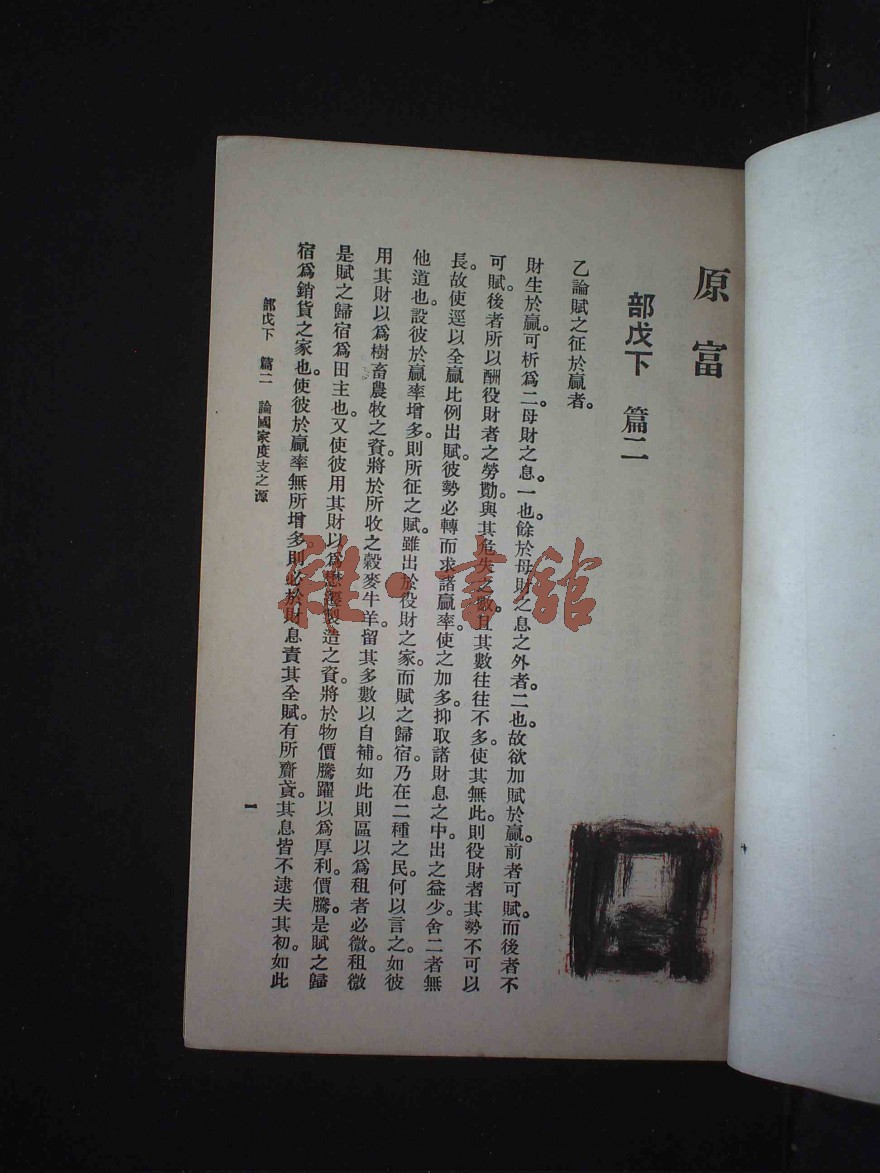 原富
部戊下 篇二
乙論賦之征於贏者。
財生於贏。可析為二。母財之息。一也。餘於母財之息之外者二也。故欲加賦於贏。前者可賦。而後者不
可賦。後者所以酬役財者之勞勩。與其危失之數。且其數往往不多。使其無此。則役財者其勢不可以
長。故使逕以全贏比例出賦。彼勢必轉而求諸贏率。使之加多。抑取諸財息之中。出之益少。舍二者無
他道也。設彼於贏率增多。則所征之賦。雖出於役財之家。而賦之歸宿。乃在二種之民。何以言之。如彼
用其財以為樹畜農牧之資。將於所收之穀麥牛羊。留其多數以自補。如此則區以為租者必微。租微
是賦之歸宿為田主也。又使彼用其財以為懋遷製造之資。將於物價騰躍以為厚利。價騰。是賦之歸
宿為銷貨之家也。使彼於贏率無所增多。則必於財息責其全賦。有所齎貣。其息皆不逮夫其初。如此
部戊下 篇二 論國家度支之源
一
雜·書館